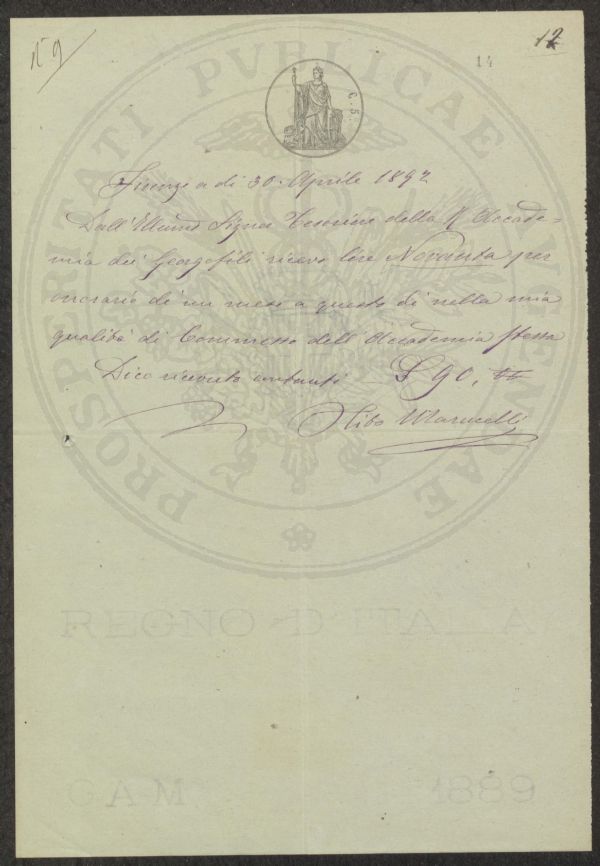 N 9
12
14
PROSPERITATI PVBLICAE AVGENDAE
C. 5.
Firenze a dì 30. Aprile 1892
Dall'Illmo Signor Tesoriere della R. Accade=
mia dei Georgofili ricevo lire Novanta per
onorario di un mese a questo dì nella mia
qualità di Commesso dell'Accademia stessa
Dico ricevute contanti £ 90,
Marucelli
REGNO D'ITALIA
G A M 1889